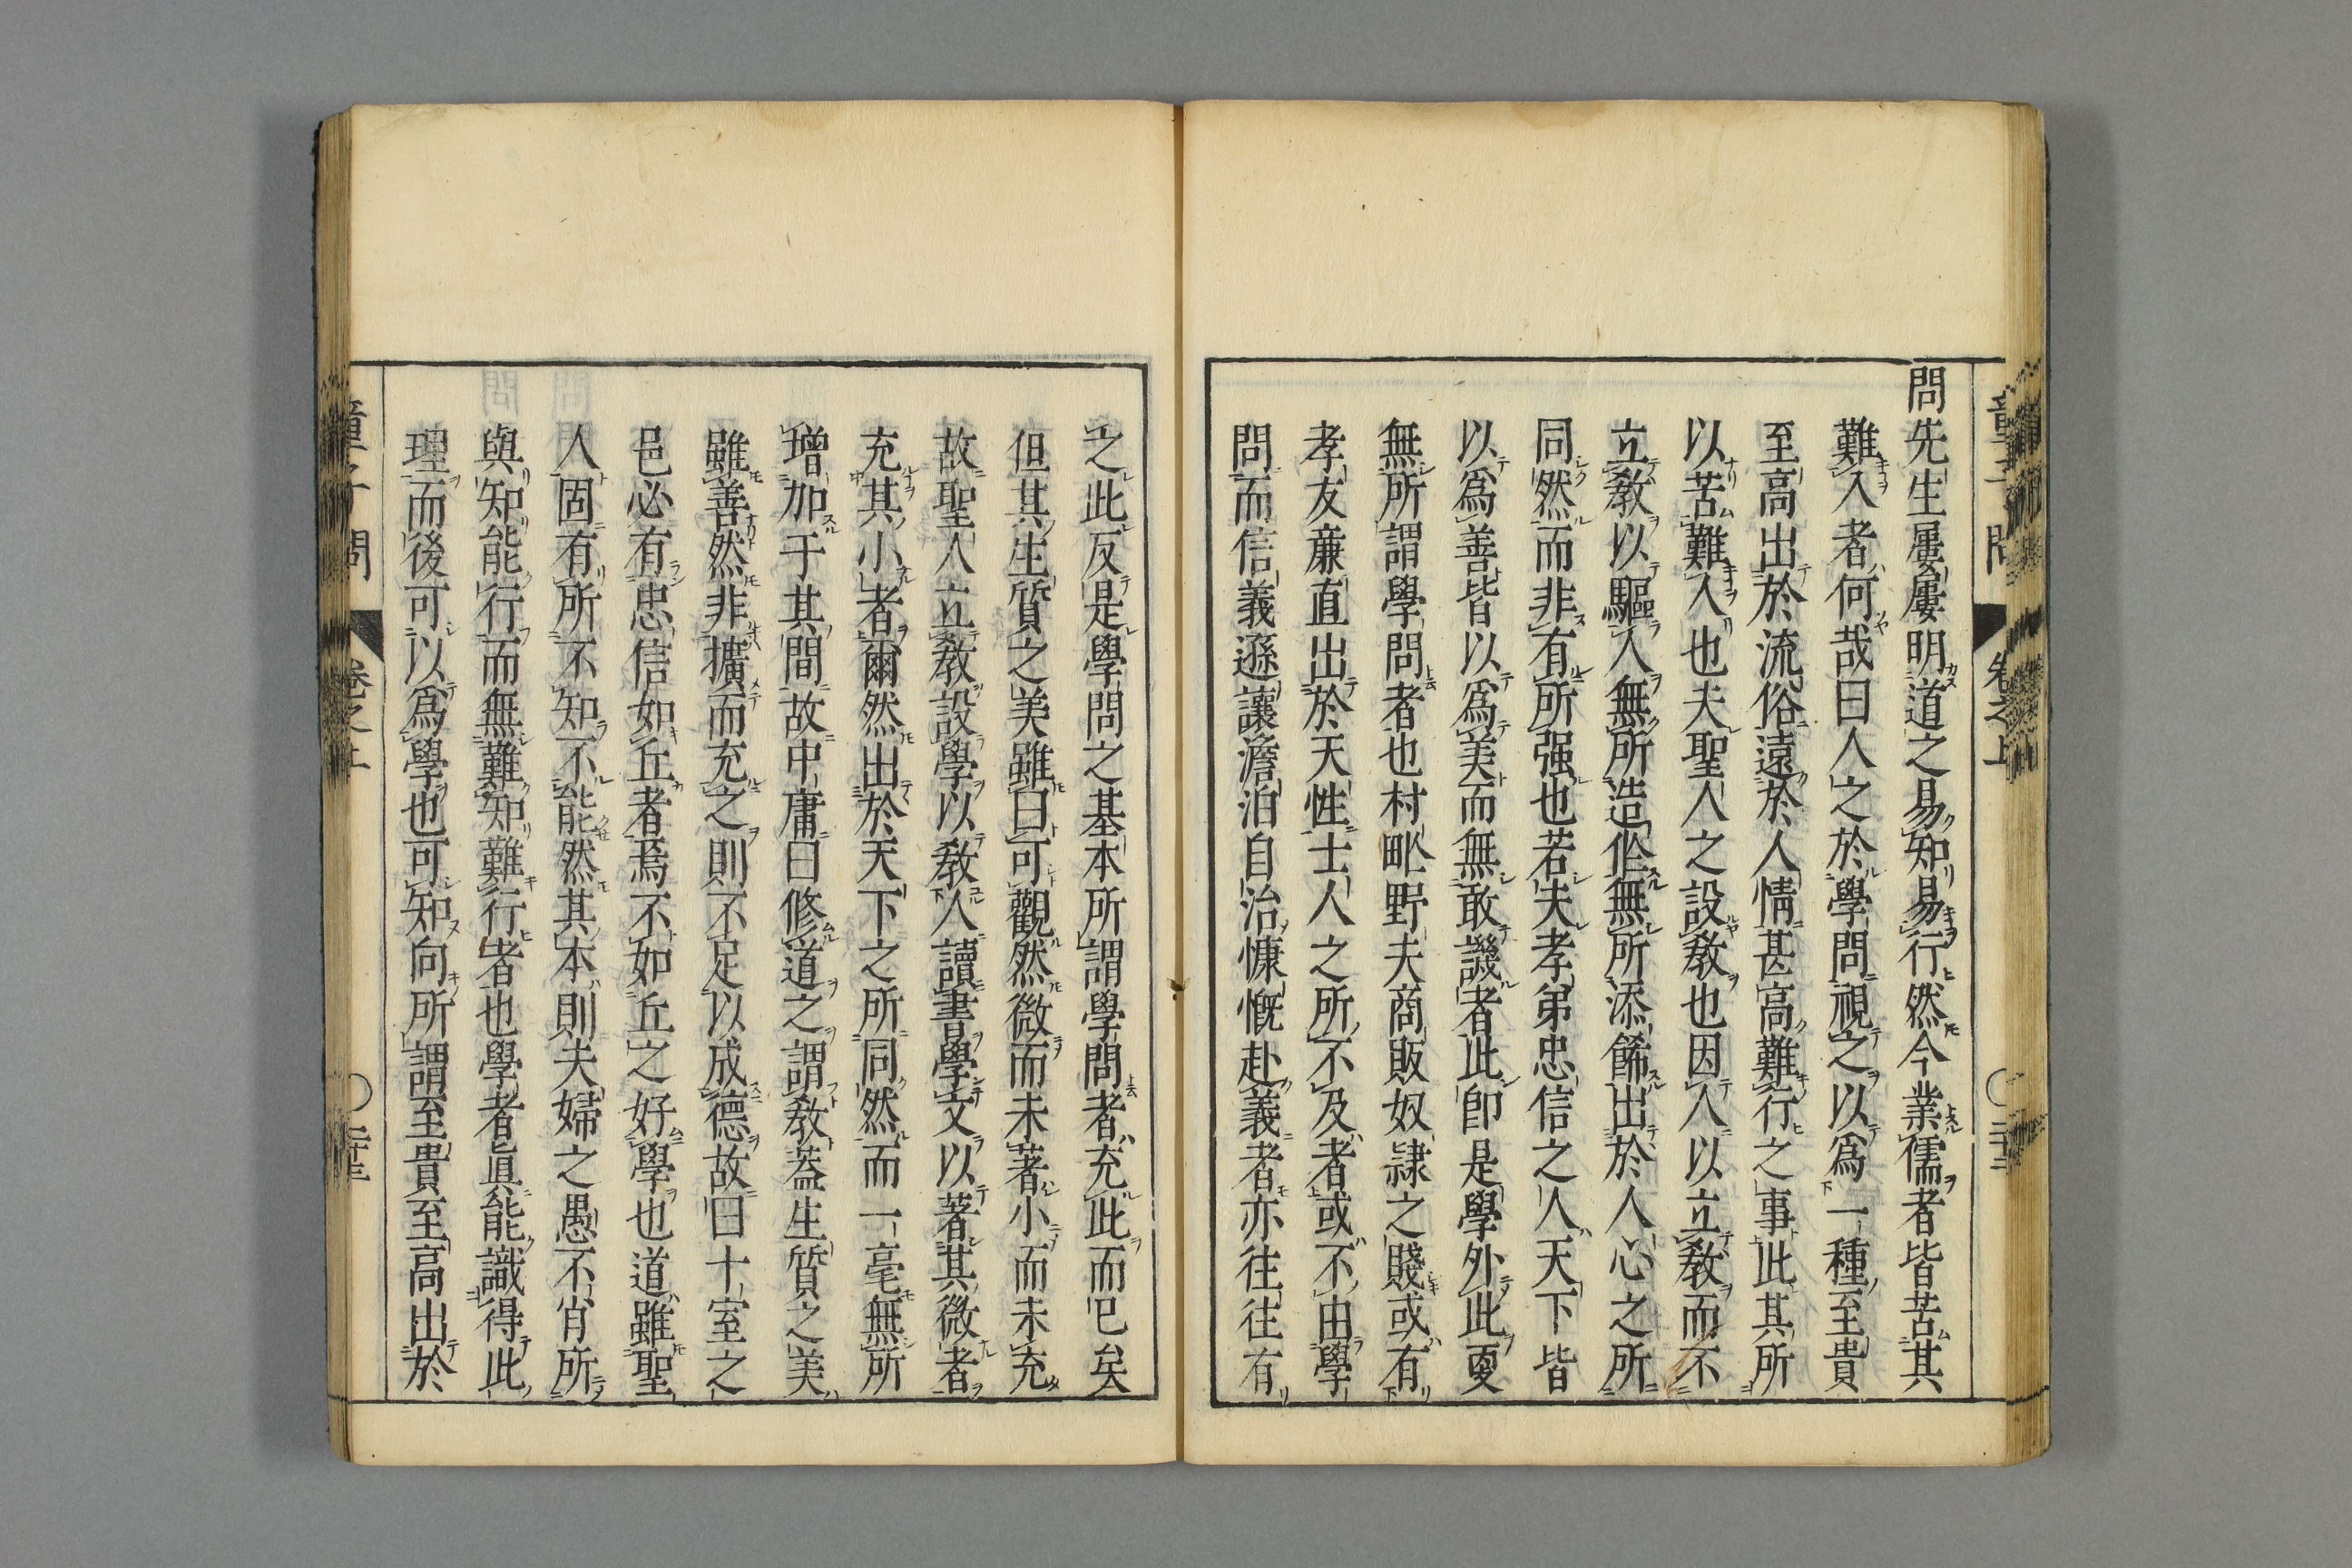 童子問 卷之上 〇 二十二
問先生屢屢明道之易知易行然今業儒者皆苦其
難入者何哉曰人之於學問視之以爲一種至貴
至高出於流俗遠於人情甚高難行之事此其所
以苦難入也夫聖人之設教也因人以立教而不
立教以驅人無所造作無所添飾出於人心之所
同然而非有所强也若夫孝弟忠信之人天下皆
以爲善皆以爲美而無敢譏者此卽是學外此更
無所謂學問者也村甿野夫商販奴隷之賤或有
孝友廉直出於天性士人之所不及者或不由學
問而信義遜讓澹泊自治慷慨赴義者亦往往有
之此反是學問之基本所謂學問者充此而已矣
但其生質之美雖曰可觀然微而未著小而未充
故聖人立教設學以教人讀書學文以著其微者
充其小者爾然出於天下之所同然而一毫無所
增加于其間故中庸曰修道之謂教蓋生質之美
雖善然非擴而充之則不足以成德故曰十室之
邑必有忠信如丘者焉不如丘之好學也道雖聖
人固有所不知不能然其本則夫婦之愚不肖所
與知能行而無難知難行者也學者眞能識得此
理而後可以爲學也可知向所謂至貴至高出於
童子問 卷之上 〇